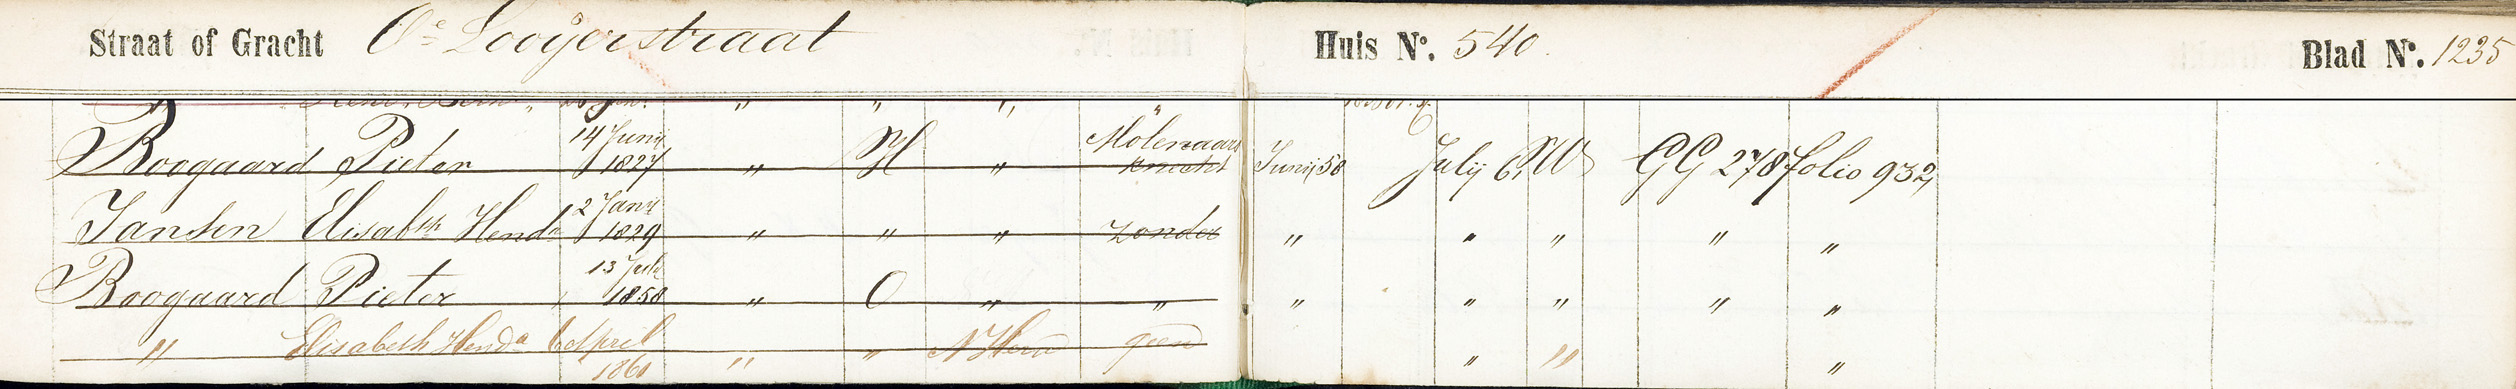 Straat of Gracht Oe Looijerstraat Huis No. 540. Blad No. 1235
Boogaard Pieter 14 Junij 1827 " H " Molenaars knecht Junij 58 July 6 W GG 278 folio 932
Jansen Elisabth Henda 2 Janij 1829 " " " zonder " " " " "
Boogaard Pieter 13 Julij 1858 " O " " " " " " "
" Elisabeth Henda 6 April 1860 " " N Herv geen " " "